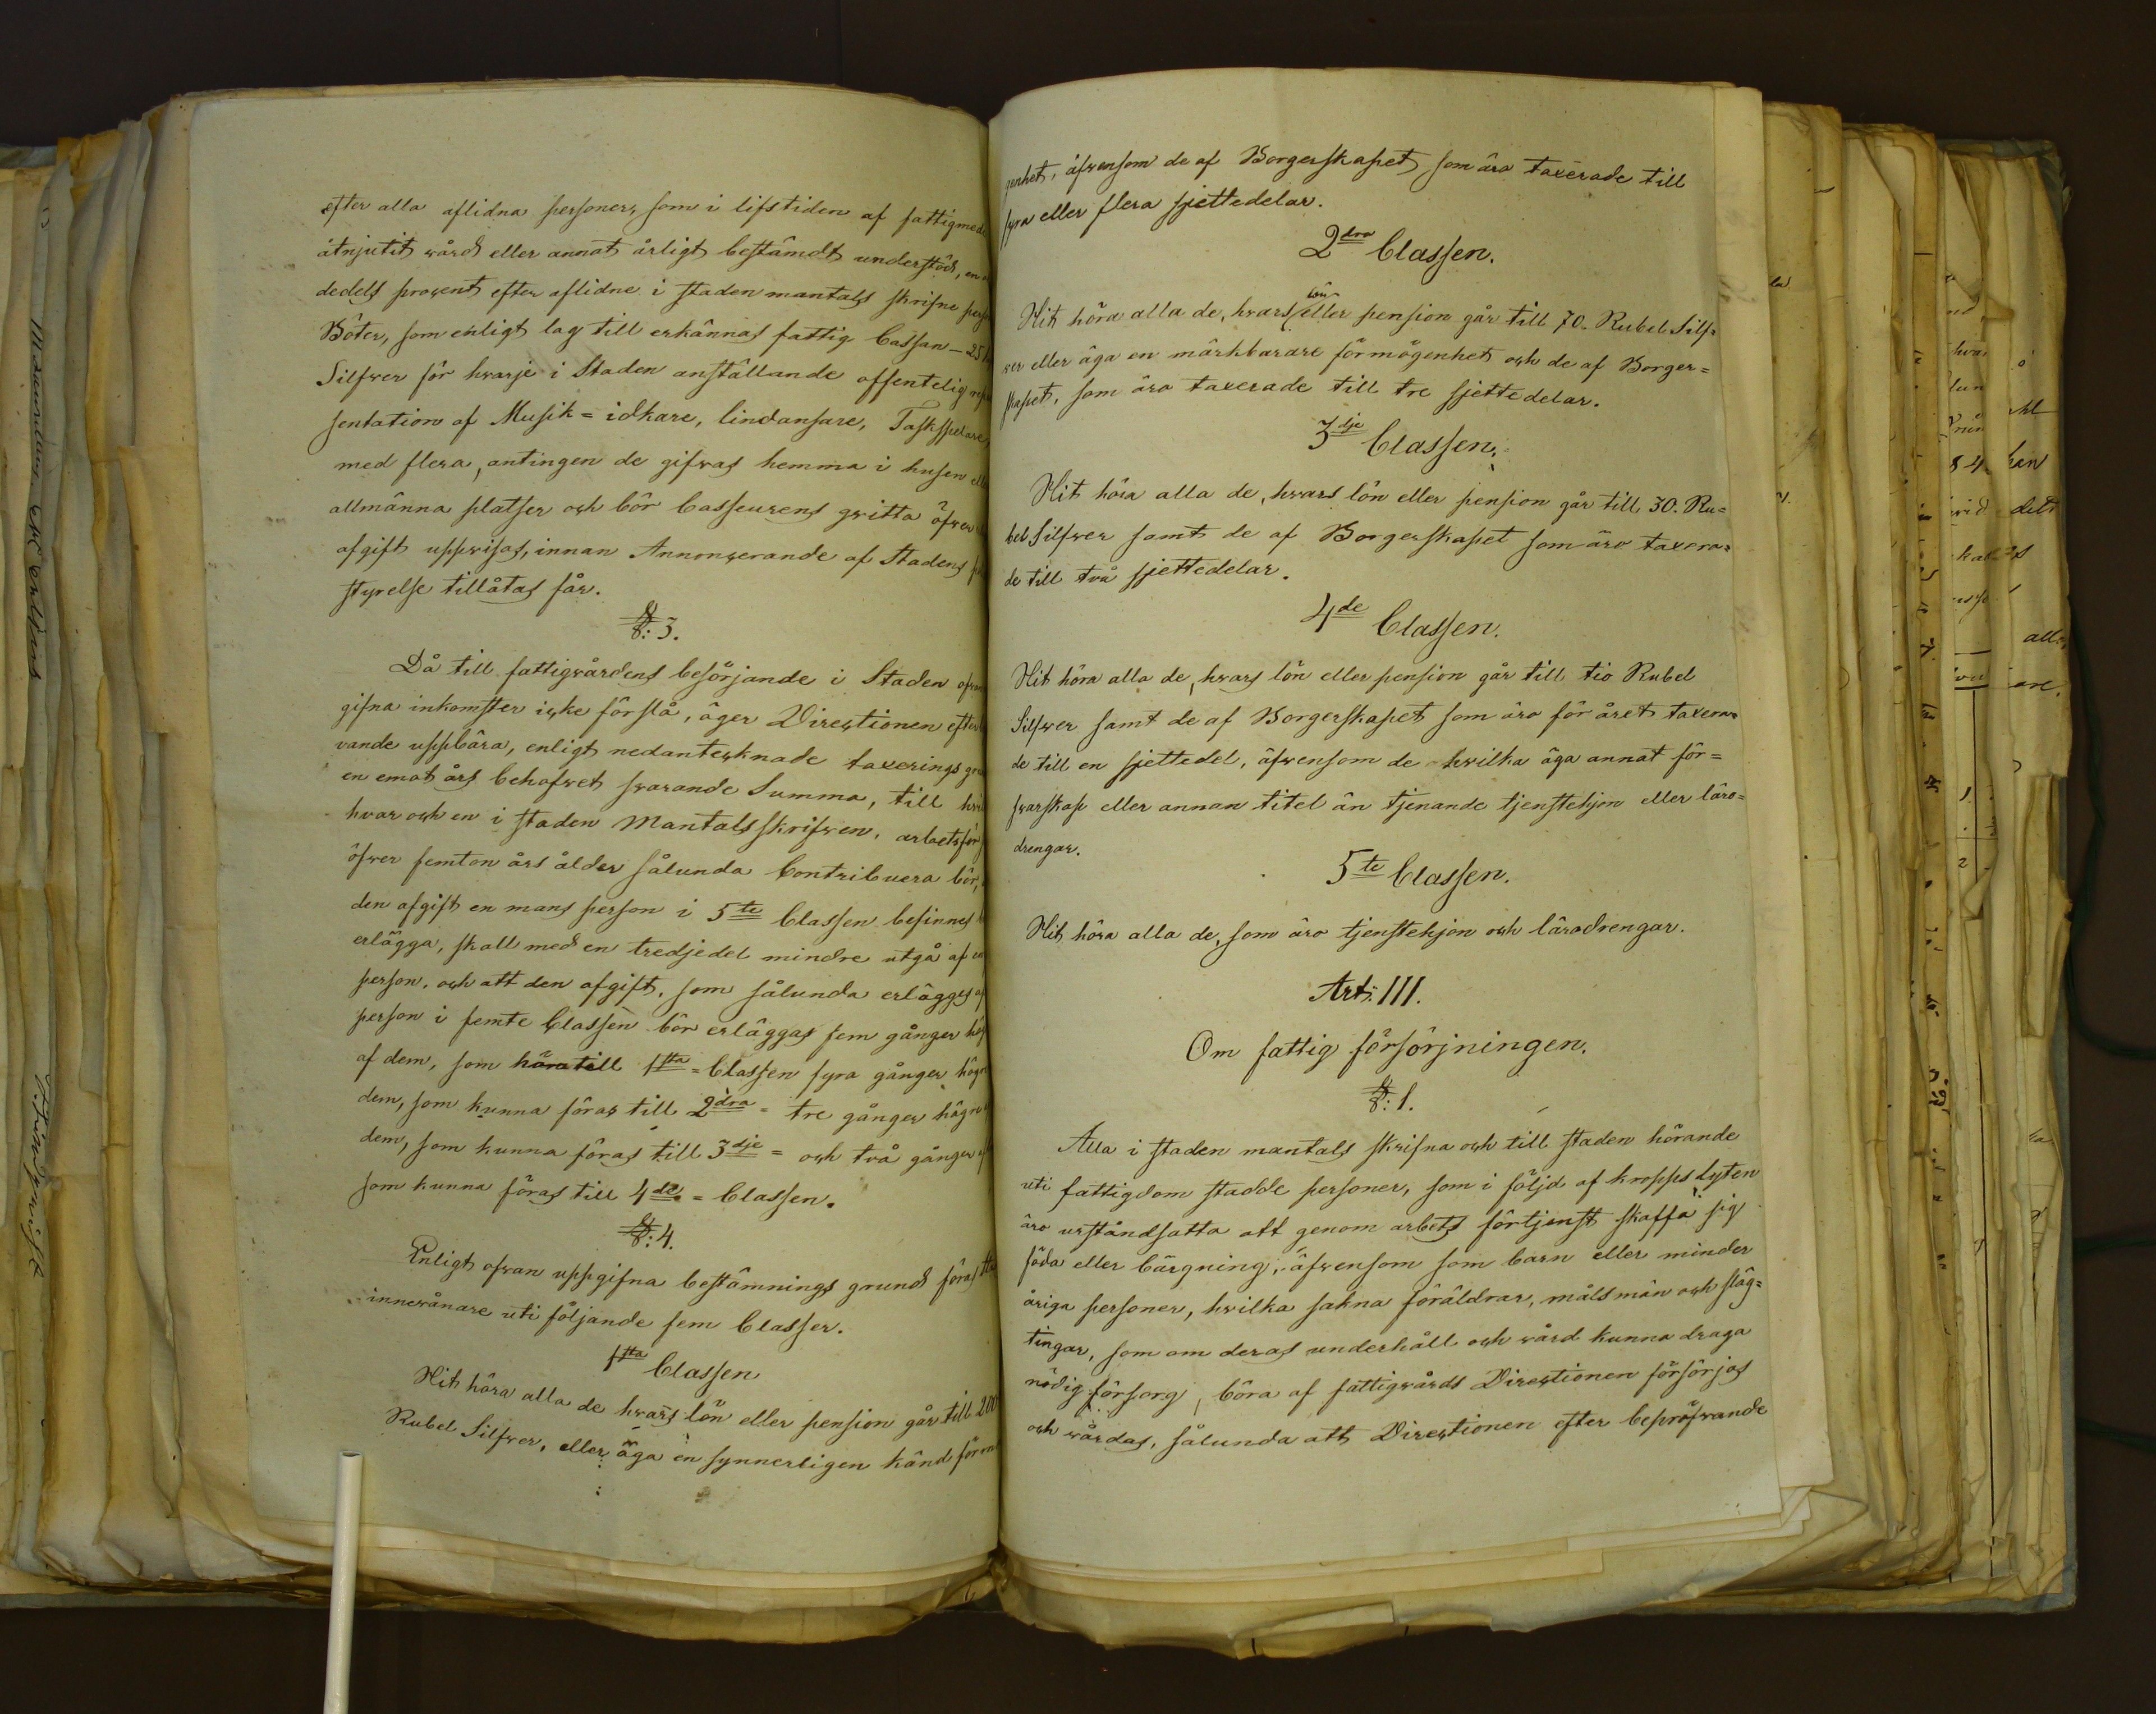 efter alla aflidna personer, som i lifstiden af fattigmede
åtnjutit wård eller annat årligt bestämdt understöd, en
dedels procent efter aflidne i staden mantals skrifne pers
Böter, som enligt lag till erkännas fattig Cassan – 25
Silfwer för hwarje i Staden anställande offentelig
sentation af Musik = idkare, lindansare, Taskspelare,
med flera, antingen de gifwas hemma i husen
allmänna platser och bör Casseurens qwitta öfwer
afgift uppwisas, innan Annoncerande af Stadens
styrelse tillåtas får.
§: 3.
Då till fattigwårdens besörjande i Staden
gifna inkomster icke förslå, äger Directionen efter
vande uppbära, enligt nedanteknade taxerings
en emot års behofwet swarande Summa, till
hvar och en i staden Mantalsskrifwen, arbetsför
öfwer femton års ålder sålunda Contribuera bör,
den afgift en mans person i 5te Classen befinnes
erlägga, skall med en tredjedel mindre utgå af
person, och att den afgift, som sålunda erlägges af
person i femte Classen bör erläggas fem gånger
af dem, som höra till 1sta = Classen fyra gånger högre
dem, som kunna föras till 2dra = tre gånger högre
dem, som kunna föras till 3dje = och två gånger
som kunna föras till 4de = Classen.
§: 4.
Enligt ofwan uppgifna bestämnings grund föras
innewånare uti följande fem Classer.
1sta Classen
Hit höra alla de hwars lön eller pension går till 200
Rubel Silfwer, eller äga en synnerligen känd
genhet, äfwensom de af Borgerskapet som äro taxerade till
fyra eller flera sjettedelar.
2dra Classen.
Hit höra alla de, hwars lön eller pension går till 70. Rubel Silf=
wer eller äga en märkbarare förmögenhet och de af Borger=
skapet, som äro taxerade till tre sjettedelar.
3dje Classen.
Hit höra alla de, hwars lön eller pension går till 30. Ru=
bel Silfwer samt de af Borgerskapet som äro taxera=
de till två sjettedelar.
4de Classen.
Hit höra alla de, hwars lön eller pension går till tio Rubel
Silfwer samt de af Borgerskapet som äro för året taxera=
de till en sjettedel, äfwensom de hwilka äga annat för=
swarskap eller annan titel än tjenande tjenstehjon eller läro=
drengar.
5te Classen.
Hit höra alla de, som äro tjenstehjon och lärodrengar.
Art: III.
Om fattig försörjningen.
§: 1.
Alla i staden mantals skrifna och till staden hörande
uti fattigdom stadde personer, som i följd af kropps Lyten
äro urståndsatta att genom arbets förtjenst skaffa sig
föda eller bärgning, äfwensom som barn eller minder
åriga personer, hwilka sakna föräldrar, målsmän och släg=
tingar, som om deras underhåll och wård kunna draga
nödig försorg, böra af fattigwårds Directionen försörjas
och wårdas, sålunda att Directionen efter bepröfwande